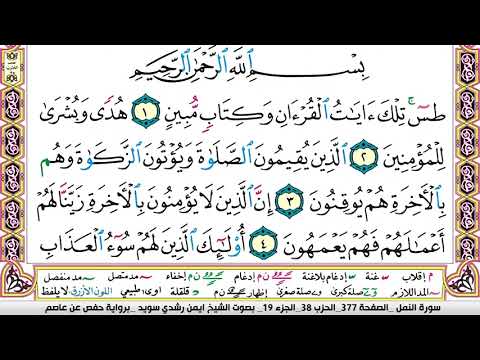 بِسْمِ ٱللَّهِ ٱلرَّحْمَٰنِ ٱلرَّحِيمِ
طسٓ ۚ تِلْكَ ءَايَٰتُ ٱلْقُرْءَانِ وَكِتَابٍ مُّبِينٍ ١ هُدًى وَبُشْرَىٰ
لِلْمُؤْمِنِينَ ٢ ٱلَّذِينَ يُقِيمُونَ ٱلصَّلَوٰةَ وَيُؤْتُونَ ٱلزَّكَوٰةَ وَهُم
بِٱلْءَاخِرَةِ هُمْ يُوقِنُونَ ٣ إِنَّ ٱلَّذِينَ لَا يُؤْمِنُونَ بِٱلْءَاخِرَةِ زَيَّنَّا لَهُمْ
أَعْمَٰلَهُمْ فَهُمْ يَعْمَهُونَ ٤ أُو۟لَٰٓئِكَ ٱلَّذِينَ لَهُمْ سُوٓءُ ٱلْعَذَابِ
م إقلاب ـّ غنة ـً إدغام بلاغنة ن م إدغام ن م إخفاء ~ مد متصل ~ مد منفصل
~ المد اللازم صلة كبرى و ے صلة صغرى إظهار ن م قلقلة اوى: طبيعي اللون الأزرق لا يلفظ
سورة النمل _الصفحة 377_ الحزب 38_ الجزء 19_ بصوت الشيخ ايمن رشدي سويد _ برواية حفص عن عاصم